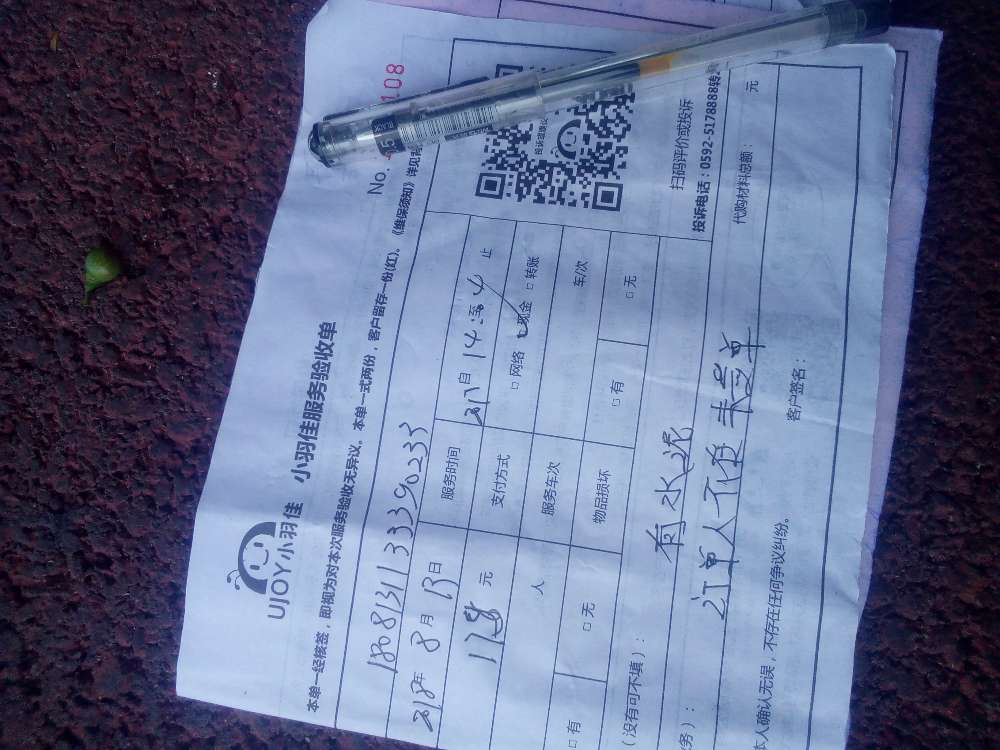 UJOY小羽佳 小羽佳服务验收单
No. 108
本单一经核签，即视为对本次服务验收无异议。本单一式两份，客户留存一份(红)、《维保须知》详见背
1808131133390233
8月13日 服务时间 自14:至 止
元 支付方式 □网络 现金 □转账
人 服务车次 车/次
□有 □无 物品损坏 □有 □无
投诉或建议
扫码评价或投诉
投诉电话：0592-5178888转
(没有可不填)： 有水泥
务)： 订单人不在 未签单
代购材料总额： 元
本人确认无误，不存在任何争议纠纷。 客户签名：